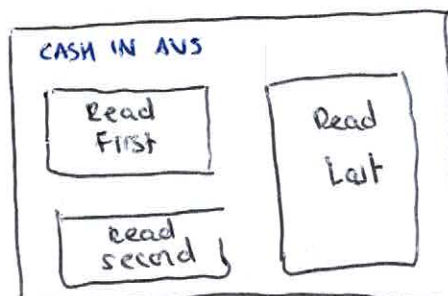 CASH IN AUS
Read
First
Read
second
Read
Last